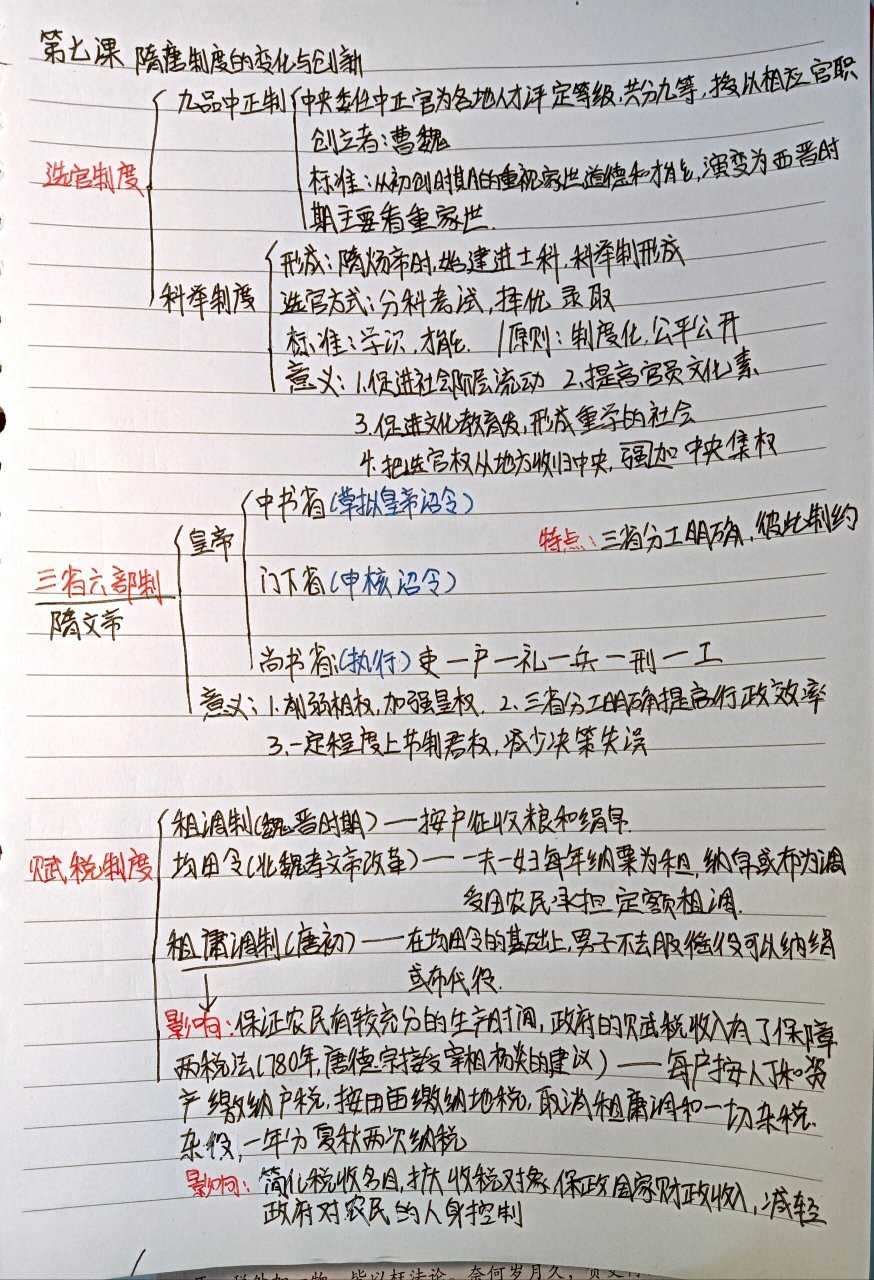 第七课 隋唐制度的变化与创新
九品中正制 中央委任中正官为各地人才评定等级,共分九等,授以相应官职
创立者:曹魏
选官制度
标准:从初创时期的重视家世道德和才能,演变为西晋时
期主要看重家世.
形成:隋炀帝时,始建进士科,科举制形成
科举制度 选官方式:分科考试,择优录取
标准:学识,才能. 原则:制度化,公平公开
意义:1.促进社会阶层流动 2.提高官员文化素
3.促进文化教育发,形成重学的社会
4.把选官权从地方收归中央,强加中央集权
中书省(草拟皇帝诏令)
皇帝 特点:三省分工明确,彼此制约
三省六部制 门下省(申核诏令)
隋文帝
尚书省(执行)吏一户一礼一兵一刑一工
意义:1.削弱相权,加强皇权. 2.三省分工明确提高行政效率
3.一定程度上节制君权,减少决策失误
租调制(魏晋时期)——按户征收粮和绢帛.
赋税制度 均田令(北魏孝文帝改革)——一夫一妇每年纳粟为租,纳帛或布为调
受田农民承担定额租调.
租庸调制(唐初)——在均田令的基础上,男子不去服徭役可以纳绢
或布代役.
影响:保证农民有较充分的生产时间,政府的赋税收入有了保障
两税法(780年,唐德宗接受宰相杨炎的建议)——每户按人丁和资
产缴纳户税,按田亩缴纳地税,取消租庸调和一切杂税.
杂役,一年分夏秋两次纳税
影响:简化税收名目,扩大收税对象,保政国家财政收入,减轻
政府对农民的人身控制